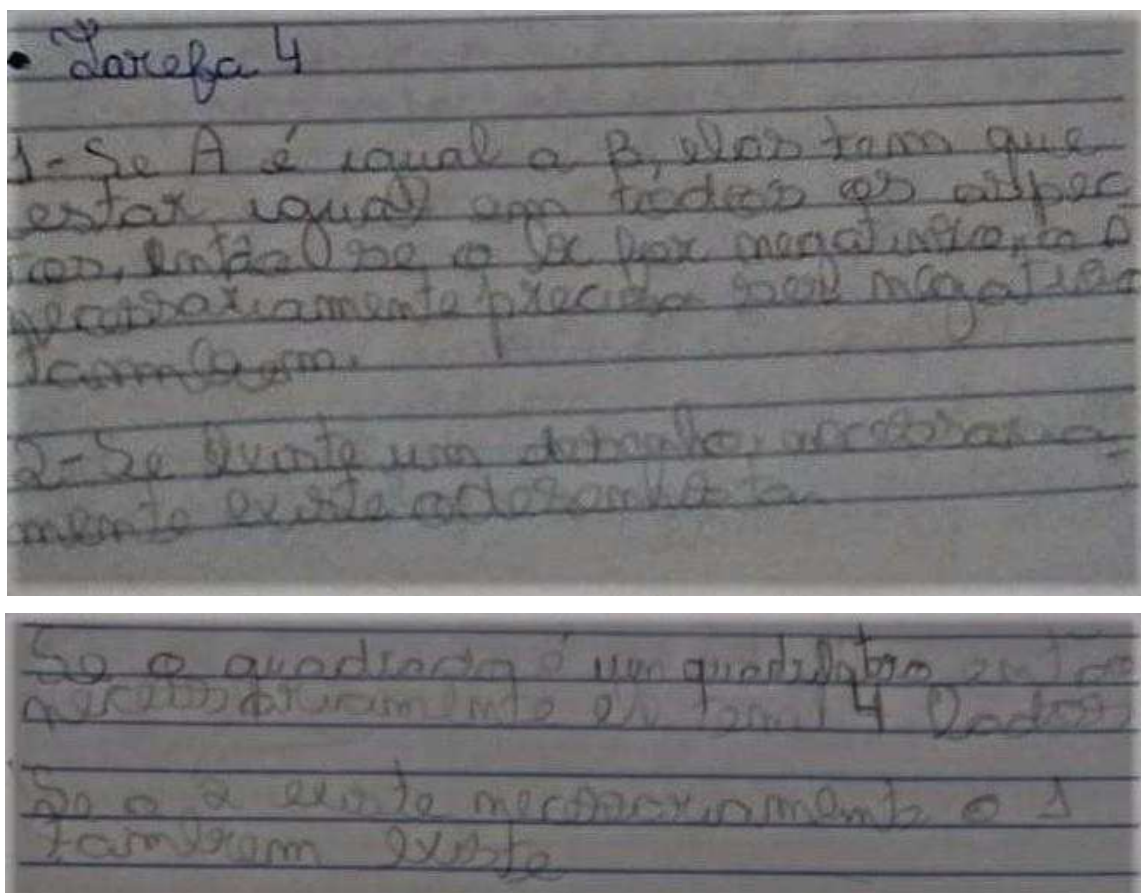 • Tarefa 4
1- Se A é igual a B, elas tem que
estar igual em todos os aspec
tos, então se o
precisa ser negativo
também.
2- Se existe um necessaria
mente existe
Se o quadrado é um quadrilatero então
necessariamente ele tem 4 lados
Se o 2 existe necessariamente o 1
tambem existe